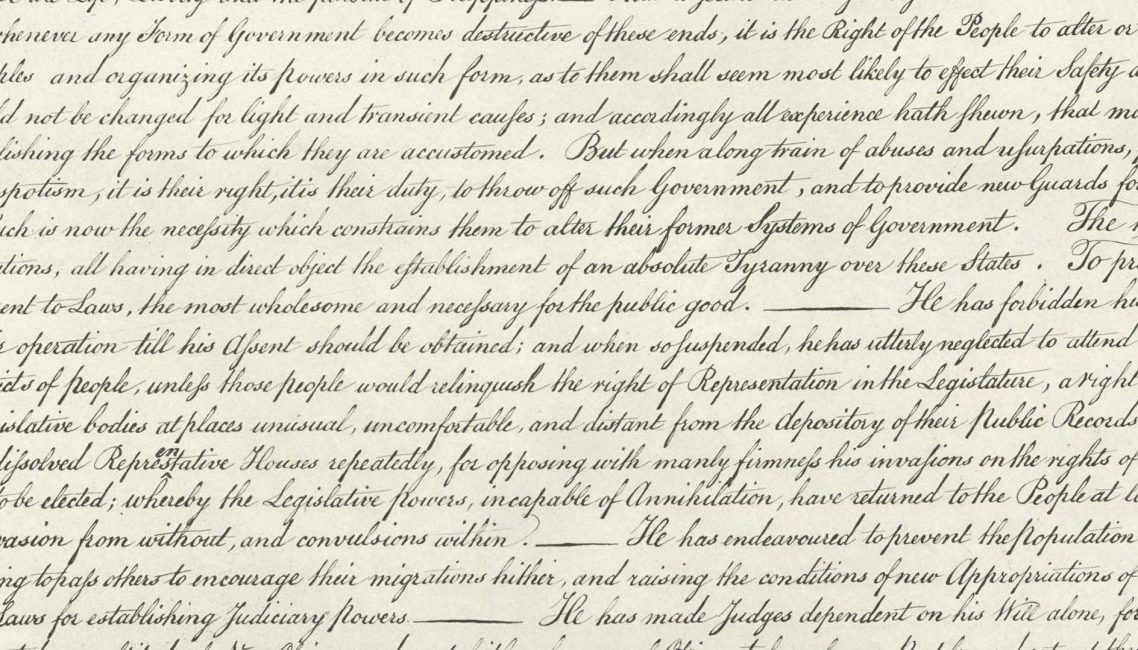 whenever any Form of Government becomes destructive of these ends, it is the Right of the People to alter or
and organizing its powers in such form, as to them shall seem most likely to effect their Safety
not be changed for light and transient causes; and accordingly all experience hath shewn, that
the forms to which they are accustomed. But when a long train of abuses and usurpations,
it is their right, it is their duty, to throw off such Government, and to provide new Guards
is now the necessity which constrains them to alter their former Systems of Government. The
all having in direct object the establishment of an absolute Tyranny over these States. To
to Laws, the most wholesome and necessary for the public good. —— He has forbidden
operation till his Assent should be obtained; and when so suspended, he has utterly neglected to attend
of people, unless those people would relinquish the right of Representation in the Legislature, a right
bodies at places unusual, uncomfortable, and distant from the depository of their Public Records
dissolved Representative Houses repeatedly, for opposing with manly firmness his invasions on the rights of
to be elected; whereby the Legislative powers, incapable of Annihilation, have returned to the People at
from without, and convulsions within. —— He has endeavoured to prevent the Population
to pass others to encourage their migrations hither, and raising the conditions of new Appropriations of
Laws for establishing Judiciary powers —— He has made Judges dependent on his Will alone, for